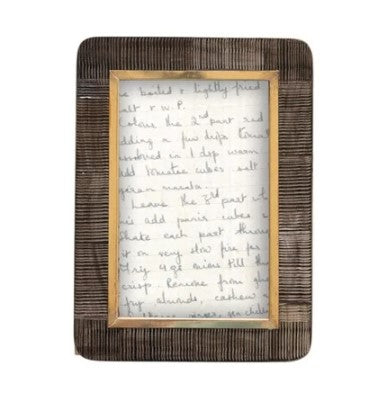 be boiled & lightly fried
salt & w.P.
Colour the 2nd part red
adding a few drops
in 1 dsp warm
add tomatoe cubes salt
garam masala.
Leave the 3rd part
add panir cubes
shake each part
it on very slow fire for
Fry onions till the
crisp. Remove from
fry almonds, cashew